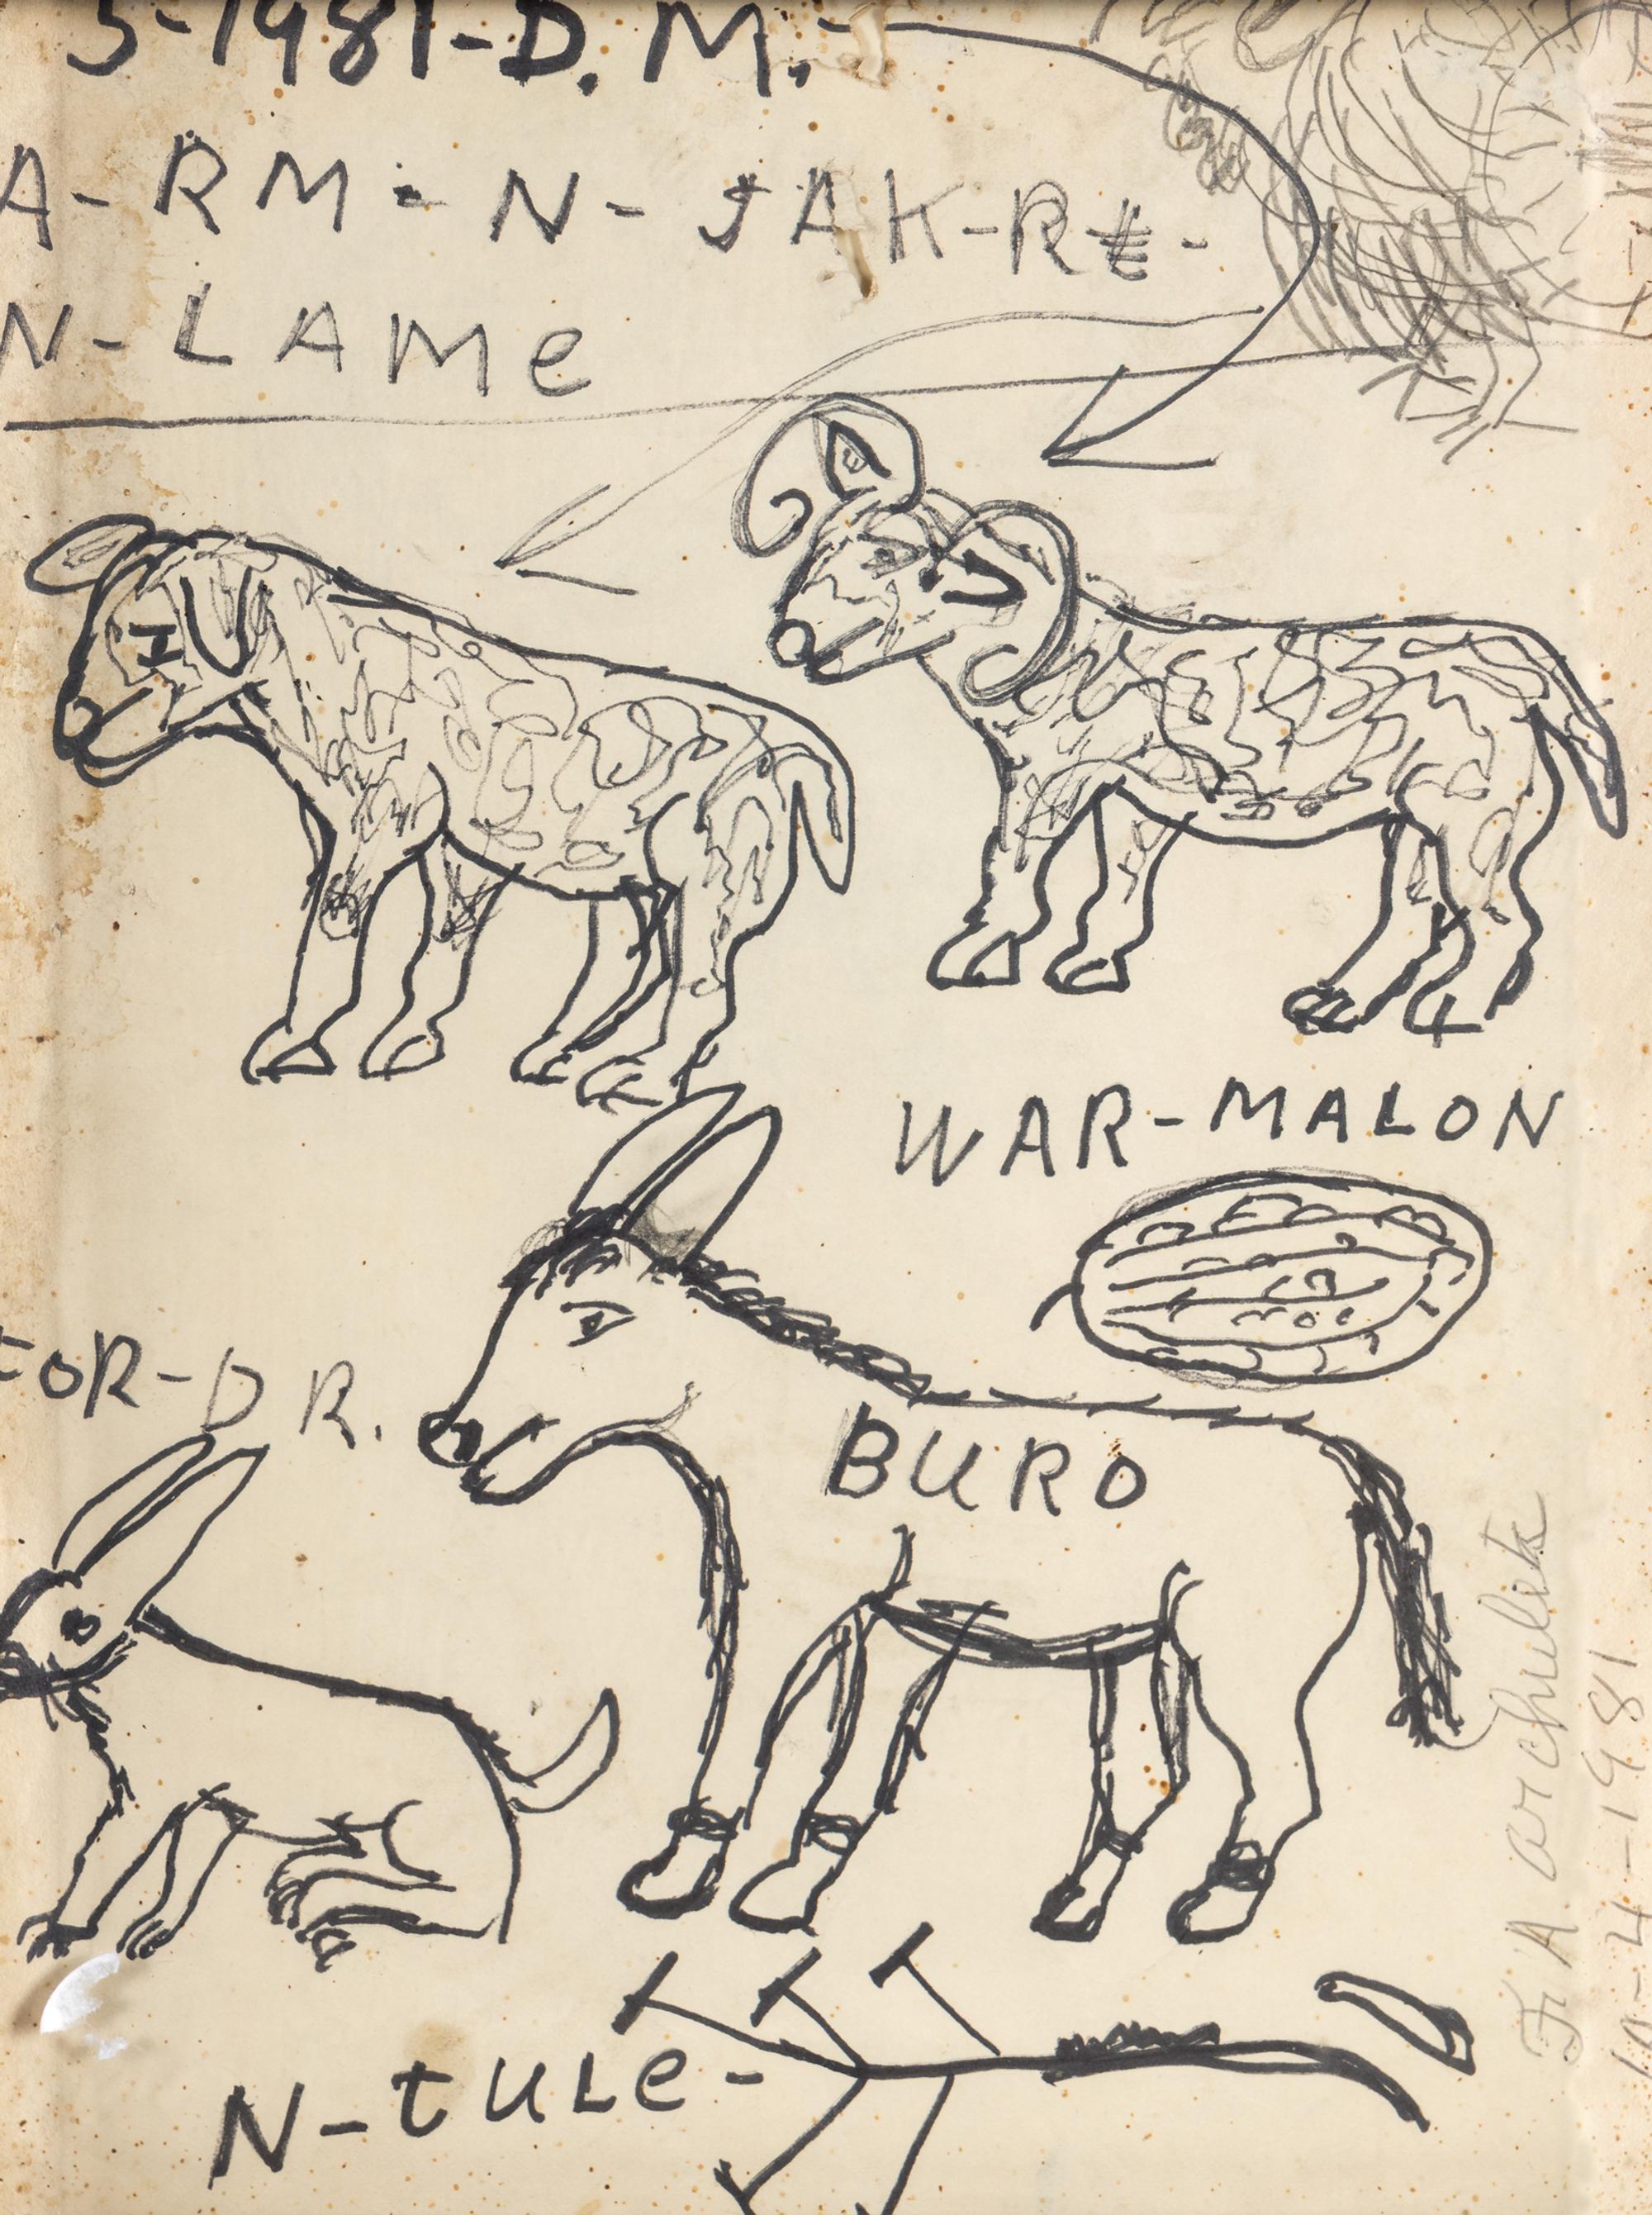 3-1981-D.M.-
A-RM-N-JAK-RE-
N-LAMe
WAR-MALON
FOR-DR.
BURO
N-tuLe-
A archuleta
10-4-1981